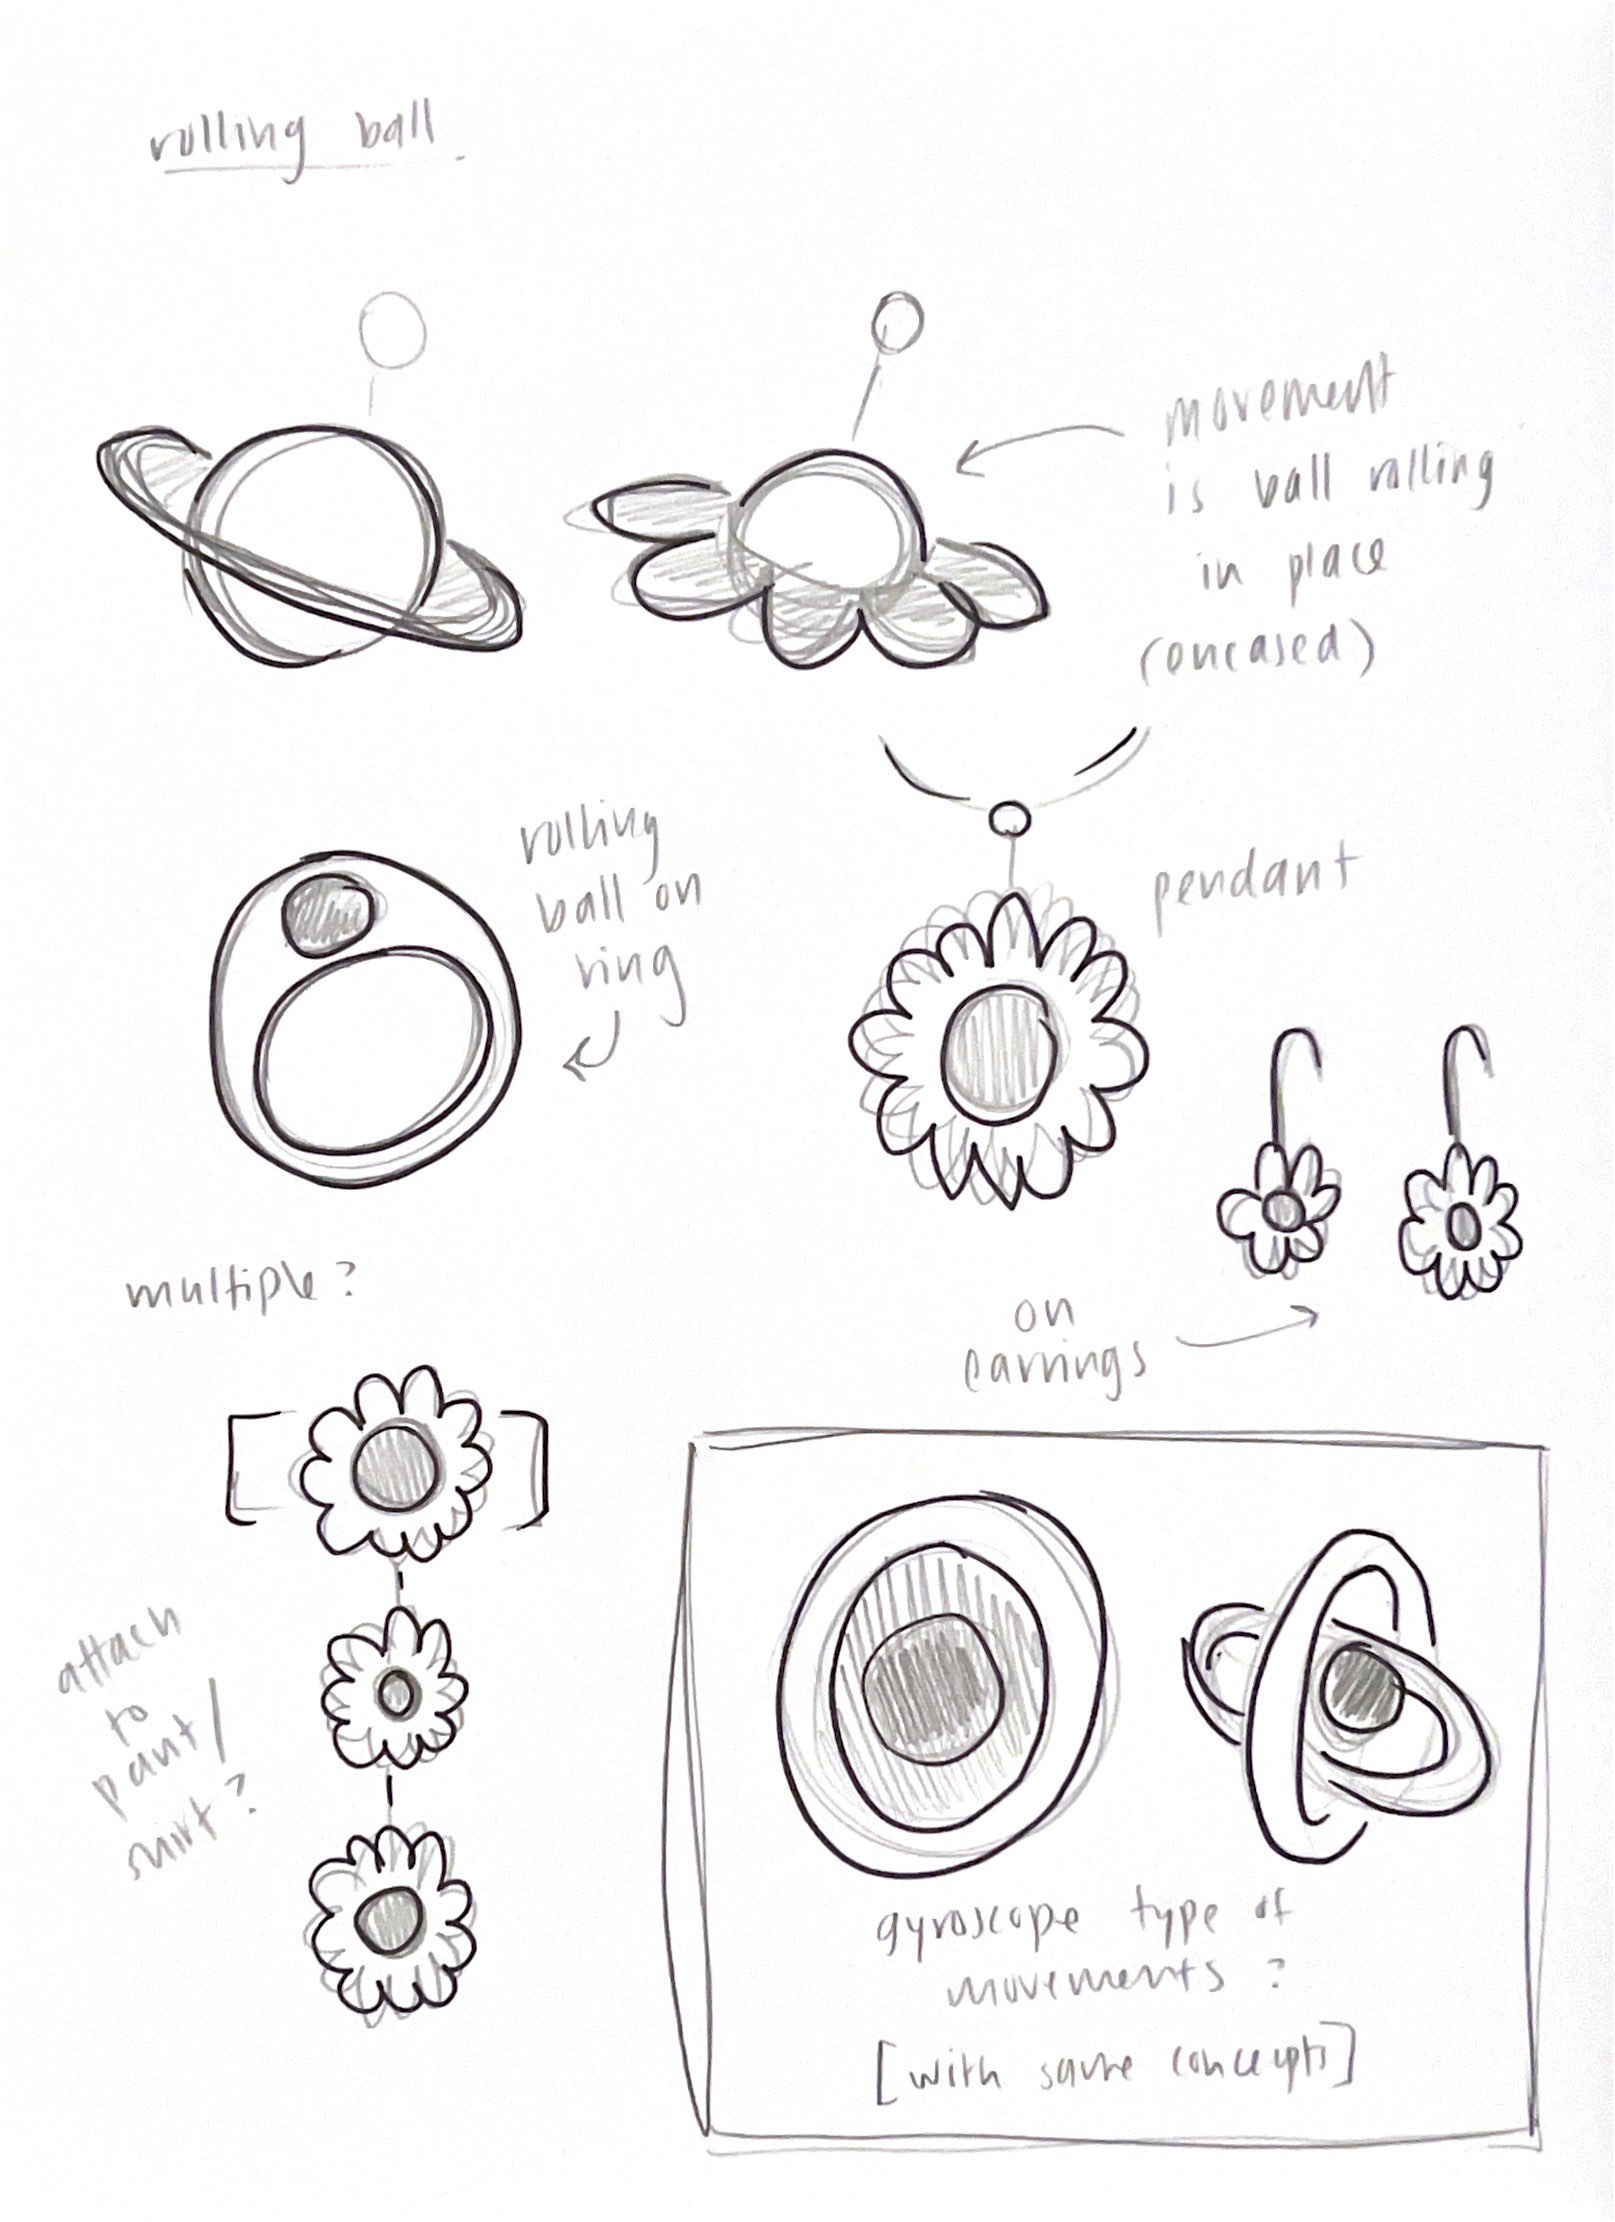 rolling ball
movement
is ball rolling
in place
(encased)
rolling
ball on
ring
pendant
on
earrings
multiple?
attach
to
pant/
shirt?
gyroscope type of
movements?
[with same concepts]